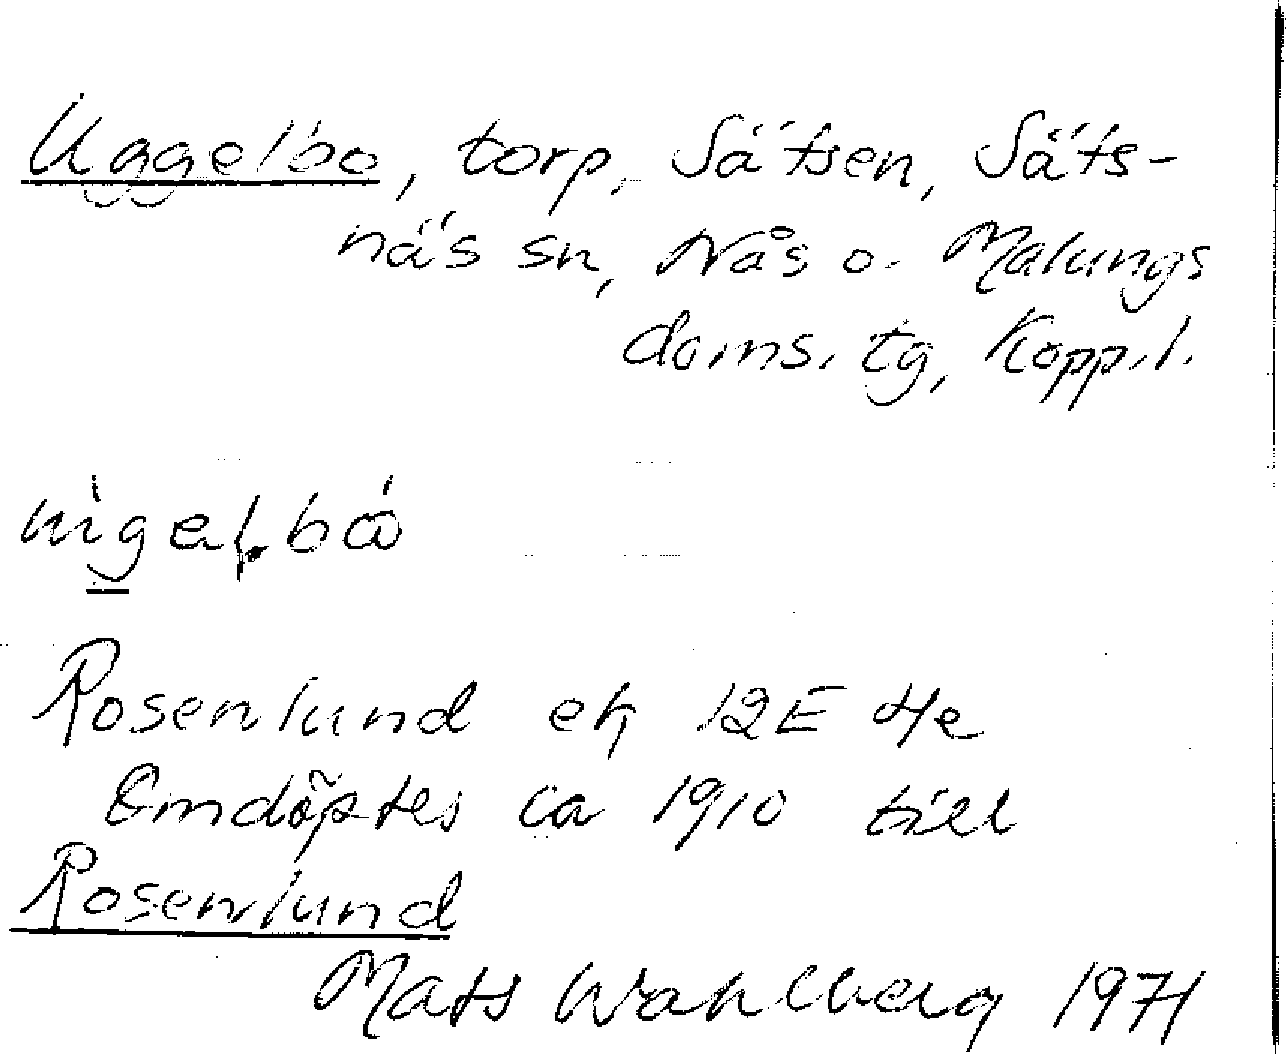 Uggelbo, torp, Sätsen, Säts-
näs sn, Nås o. Malungs
doms. tg, Kopp. l.
Rosenlund ek 12E 4e
Omdöptes ca 1910 till
Rosenlund
Mats Wahlberg 1971